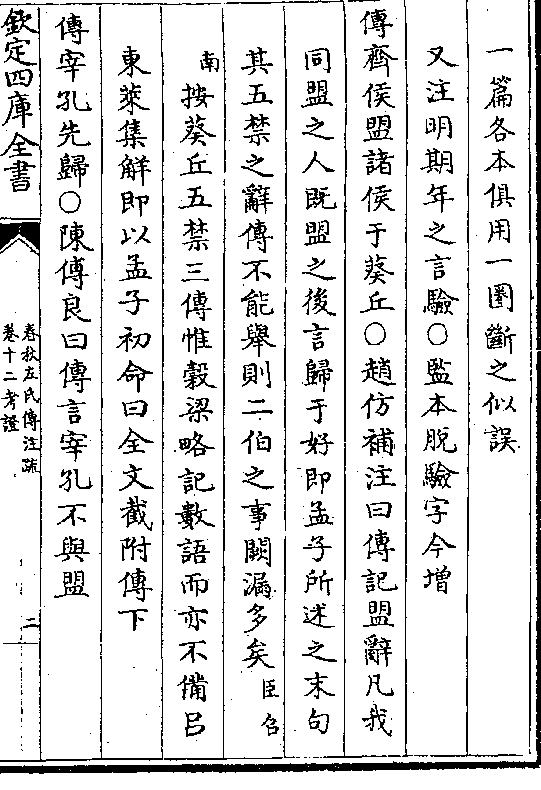 一篇各本俱用一圈斷之似誤
又注明期年之言驗○監本脫驗字今增
傳齊侯盟諸侯于葵丘○趙仿補注曰傳記盟辭凡我
同盟之人既盟之後言歸于好即孟子所述之末句
其五禁之辭傳不能舉則二伯之事闕漏多矣臣召
南按葵丘五禁三傳惟穀梁略記數語而亦不備吕
東萊集解即以孟子初命曰全文截附傳下
傳宰孔先歸○陳傅良曰傳言宰孔不與盟
欽定四庫全書
春秋左氏傳注疏
卷十二考證
二